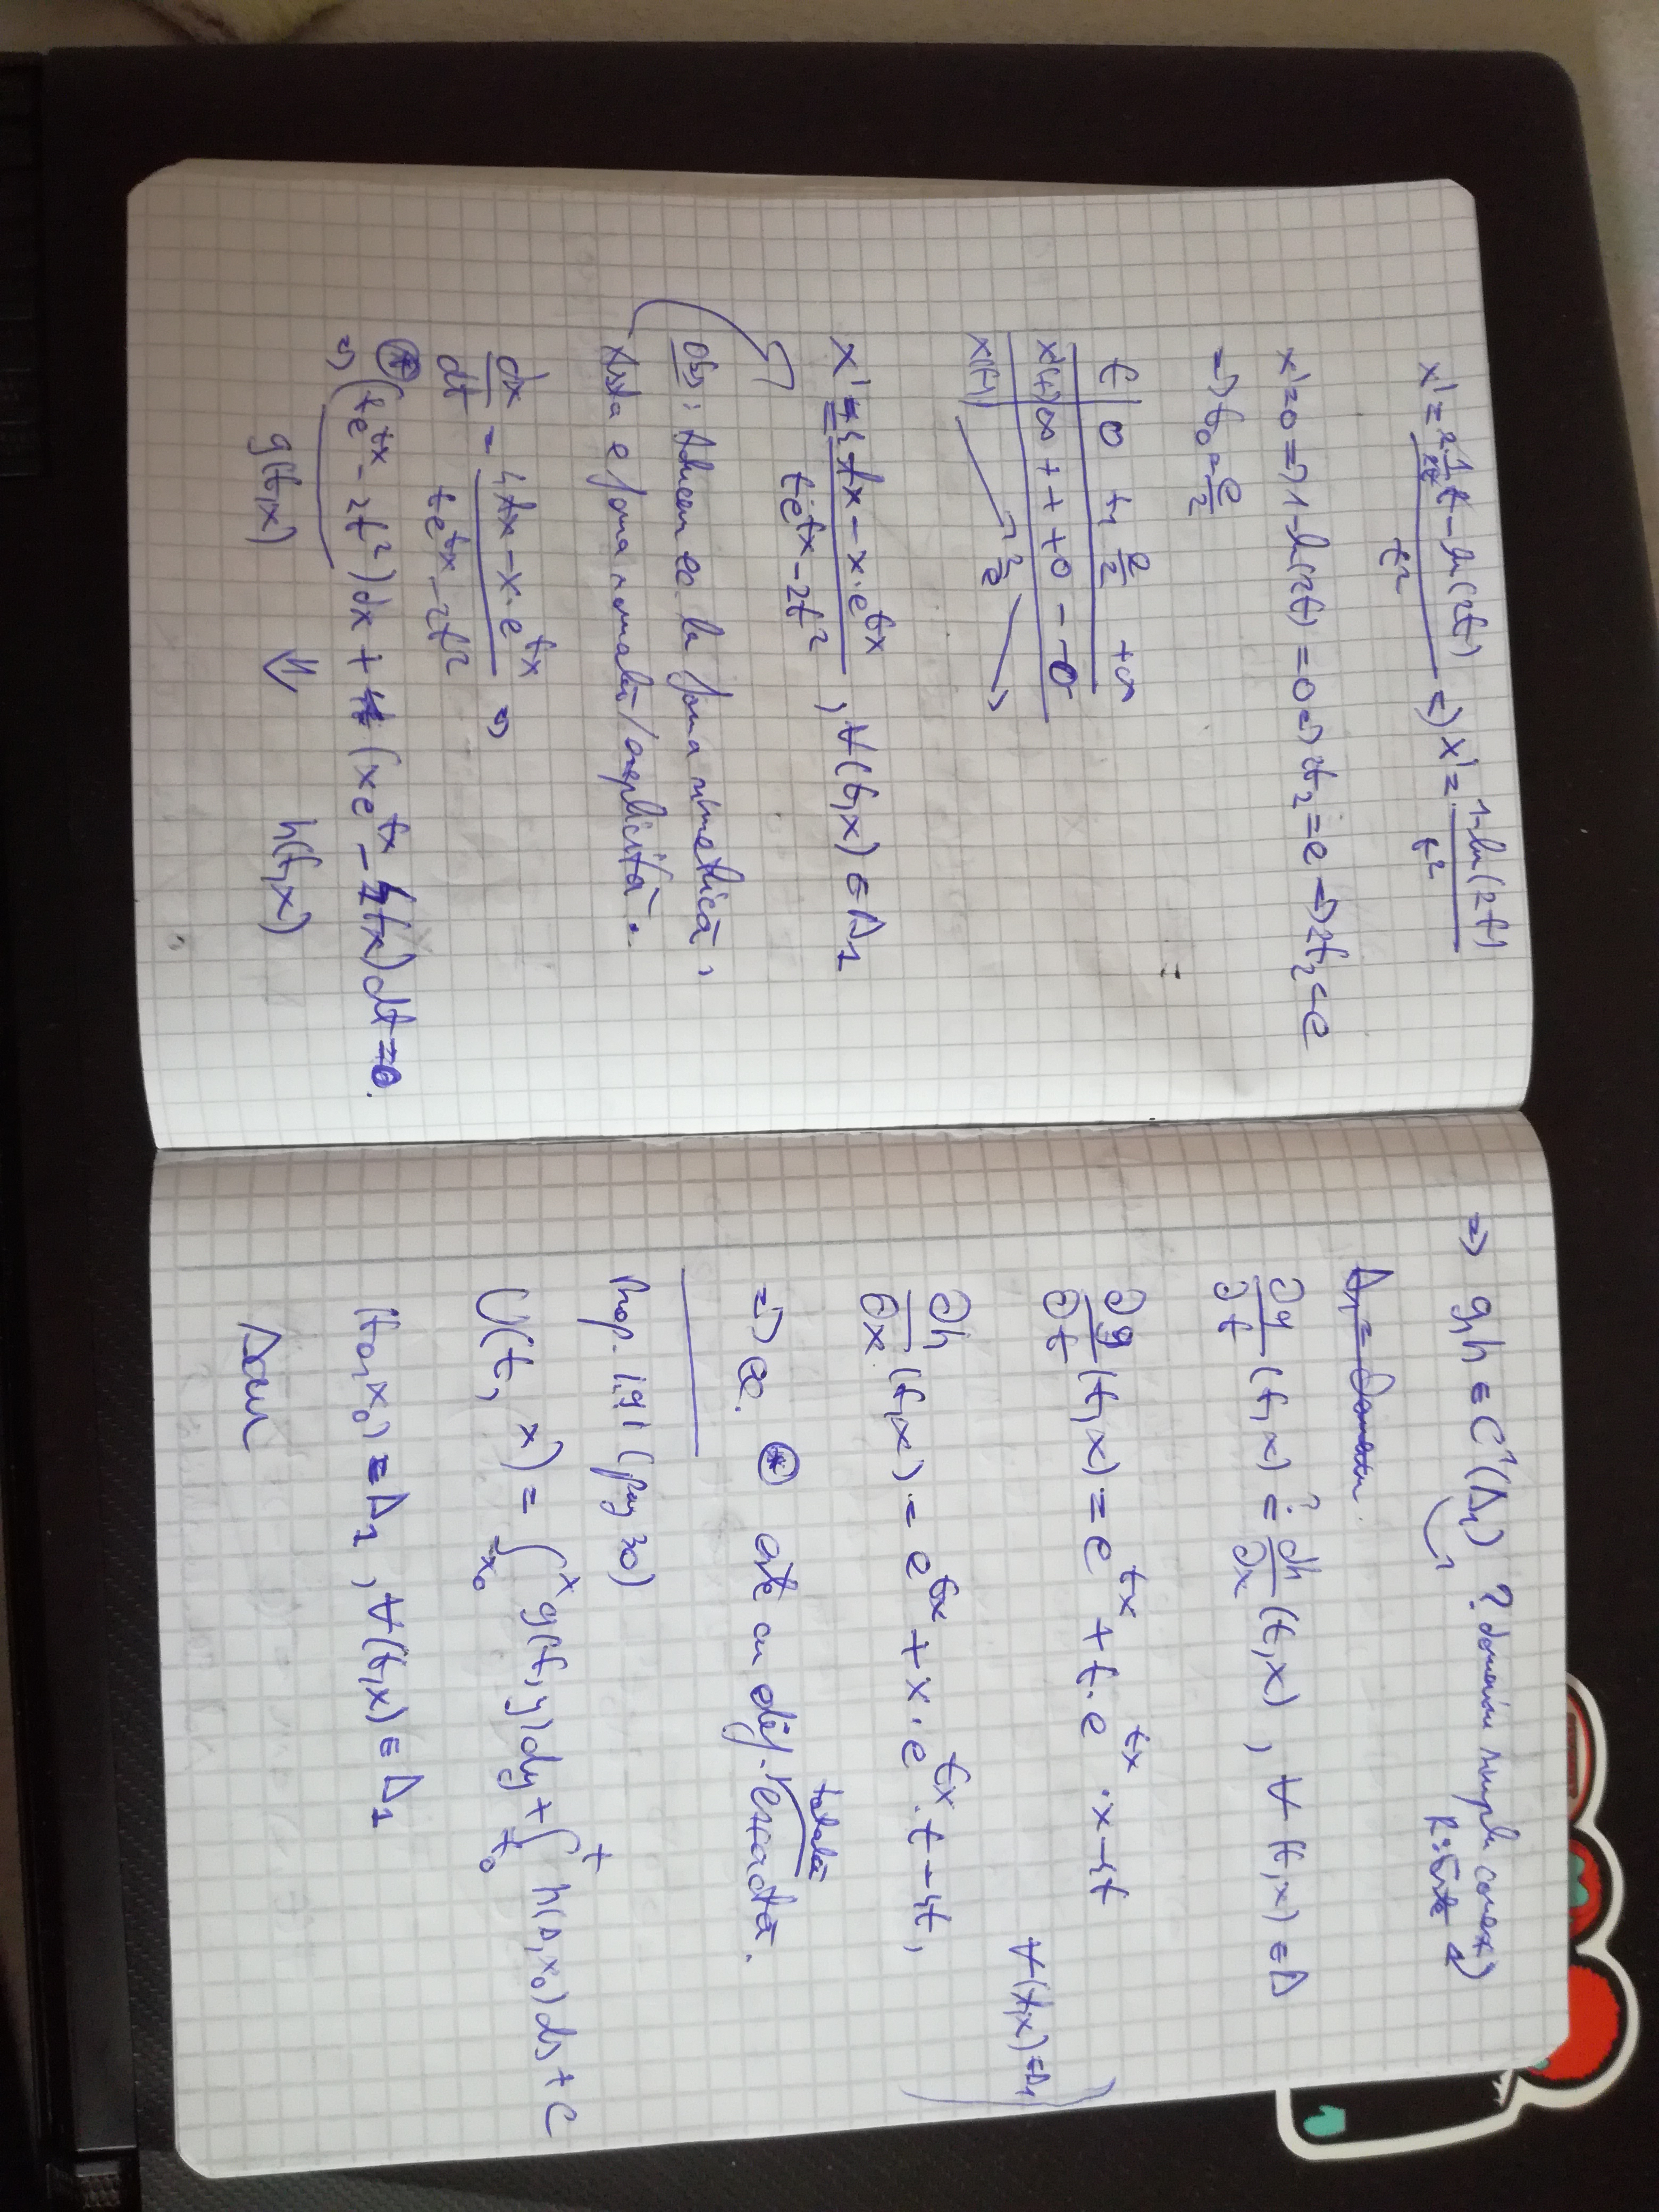 x' = 2·1/2t·t - ln(2t) / t² => x' = 1-ln(2t) / t²
x'=0 => 1-ln(2t)=0 => 2t₂=e => 2t₂=e
=> t₀=e/2
t | 0 t₁ e/2 +∞
x'(t) | ∞ + + + 0 - - 0
x(t) | ↗ 2/e ↘
x' = 4tx - x·e^tx / te^tx - 2t² , ∀(t,x) ∈ Δ₁
Obs: Aducem ec. la forma simetrică,
Asta e forma normală/explicită.
dx/dt = 4tx - x·e^tx / te^tx - 2t² =>
(*) => (te^tx - 2t²)dx + (xe^tx - 4tx)dt = 0.
g(t,x) ⇓ h(t,x)
=> g,h ∈ C¹(Δ₁) ? domeniu simplu conex)
∂g/∂t (t,x) ?= ∂h/∂x (t,x) , ∀ (t,x) ∈ Δ
∂g/∂t (t,x) = e^tx + t·e^tx·x - 4t
∀(t,x) ∈ Δ₁
∂h/∂x (t,x) = e^tx + x·e^tx·t - 4t,
=> ec. (*) este cu dif. totală exactă.
Prop. 1.9.1 (pag 30)
U(t, x) = ∫x₀^x g(t,y)dy + ∫t₀^t h(s,x₀)ds + C
(t₀,x₀) ∈ Δ₁ , ∀(t,x) ∈ Δ₁